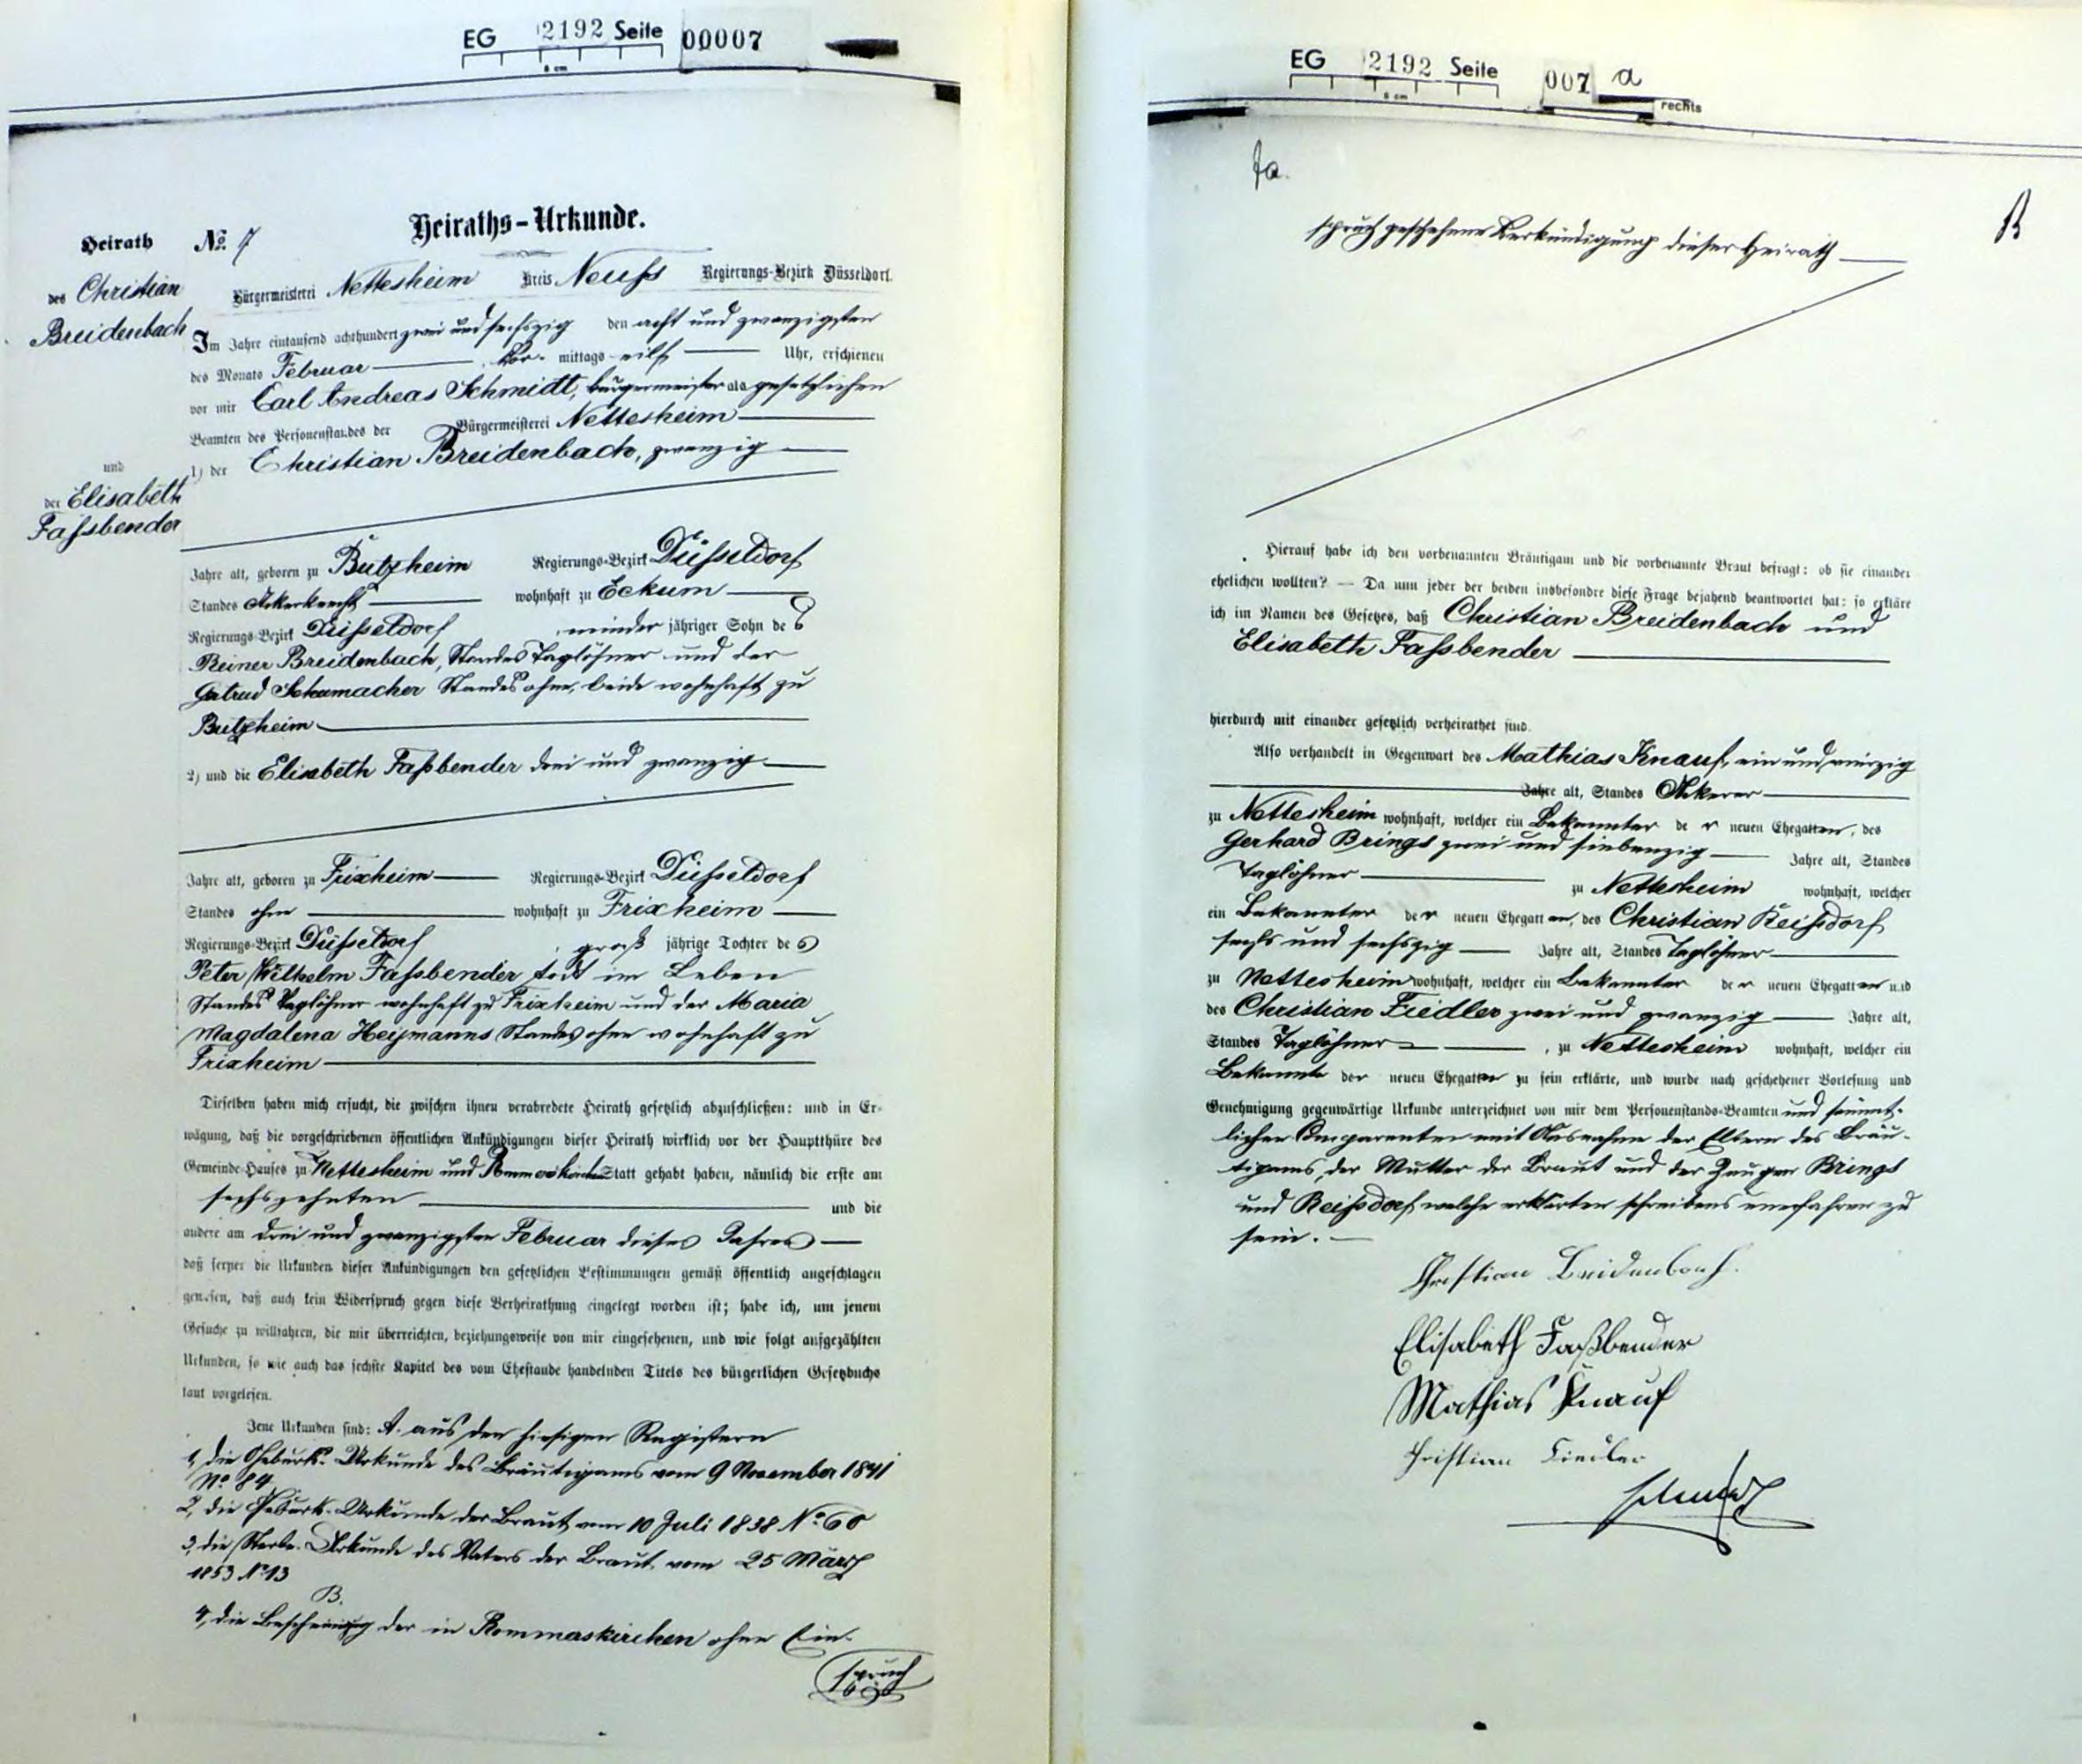 EG 2192 Seite 00007
6 cm
Heirath No. 7
des Christian
Breidenbach
und
der Elisabeth
Fassbender
Heiraths-Urkunde.
Bürgermeisterei Nettesheim Kreis Neuss Regierungs-Bezirk Düsseldorf.
Im Jahre eintausend achthundert zwei und sechszig den acht und zwanzigsten
des Monats Februar Vor- mittags eilf Uhr, erschienen
vor mir Carl Andreas Schmidt, Bürgermeister als gesetzlichen
Beamten des Personenstandes der Bürgermeisterei Nettesheim
1) der Christian Breidenbach, zwanzig
Jahre alt, geboren zu Butzheim Regierungs-Bezirk Düsseldorf
Standes Ackerknecht wohnhaft zu Eckum
Regierungs-Bezirk Düsseldorf, minder jähriger Sohn des
Reiner Breidenbach, Standes Taglöhner und der
Gertrud Schumacher Standes ohne, beide wohnhaft zu
Butzheim
2) und die Elisabeth Faßbender drei und zwanzig
Jahre alt, geboren zu Frixheim Regierungs-Bezirk Düsseldorf
Standes ohne wohnhaft zu Frixheim
Regierungs-Bezirk Düsseldorf, groß jährige Tochter des
Peter Wilhelm Fassbender todt im Leben
Standes Taglöhner wohnhaft zu Frixheim und der Maria
Magdalena Heymanns Standes ohne wohnhaft zu
Frixheim
Dieselben haben mich ersucht, die zwischen ihnen verabredete Heirath gesetzlich abzuschließen: und in Er-
wägung, daß die vorgeschriebenen öffentlichen Ankündigungen dieser Heirath wirklich vor der Hauptthüre des
Gemeinde-Hauses zu Nettesheim und Rommerskirchen Statt gehabt haben, nämlich die erste am
sechszehnten und die
andere am drei und zwanzigsten Februar dieses Jahres
daß ferner die Urkunden dieser Ankündigungen den gesetzlichen Bestimmungen gemäß öffentlich angeschlagen
gewesen, daß auch kein Widerspruch gegen diese Verheirathung eingelegt worden ist; habe ich, um jenem
Gesuche zu willfahren, die mir überreichten, beziehungsweise von mir eingesehenen, und wie folgt aufgezählten
Urkunden, so wie auch das sechste Kapitel des vom Ehestande handelnden Titels des bürgerlichen Gesetzbuchs
laut vorgelesen.
Jene Urkunden sind: A. aus den hiesigen Registern
1, die Geburts-Urkunde des Bräutigams vom 9 November 1841
No 84
2, die Geburts-Urkunde der Braut vom 10 Juli 1838 No 60
3, die Sterbe-Urkunde des Vaters der Braut vom 25 März
1853 No 13
B.
4, die Bescheinigung der in Rommerskirchen ohne Ein-
spruch
EG 2192 Seite 007 a
6 cm
rechts
7a.
B
spruch geschehene Verkündigung dieser Heirath
Hierauf habe ich den vorbenannten Bräutigam und die vorbenannte Braut befragt: ob sie einander
ehelichen wollten? — Da nun jeder der beiden insbesondre diese Frage bejahend beantwortet hat: so erkläre
ich im Namen des Gesetzes, daß Christian Breidenbach und
Elisabeth Fassbender
hierdurch mit einander gesetzlich verheirathet sind.
Also verhandelt in Gegenwart des Mathias Knauf, ein und vierzig
Jahre alt, Standes Ackerer
zu Nettesheim wohnhaft, welcher ein Bekannter der neuen Ehegatten, des
Gerhard Brings zwei und siebenzig Jahre alt, Standes
Taglöhner zu Nettesheim wohnhaft, welcher
ein Bekannter der neuen Ehegatten, des Christian Reissdorf
sechs und sechszig Jahre alt, Standes Taglöhner
zu Nettesheim wohnhaft, welcher ein Bekannter der neuen Ehegatten und
des Christian Fiedler zwei und zwanzig Jahre alt,
Standes Taglöhner, zu Nettesheim wohnhaft, welcher ein
Bekannte der neuen Ehegatten zu sein erklärte, und wurde nach geschehener Vorlesung und
Genehmigung gegenwärtige Urkunde unterzeichnet von mir dem Personenstands-Beamten und sämmt-
lichen Comparenten mit Ausnahme der Eltern des Bräu-
tigams, der Mutter der Braut und der Zeugen Brings
und Reissdorf welche erklärten schreibens unerfahren zu
sein.
Christian Breidenbach.
Elisabeth Faßbender
Mathias Knauf
Christian Fiedler
Schmidt